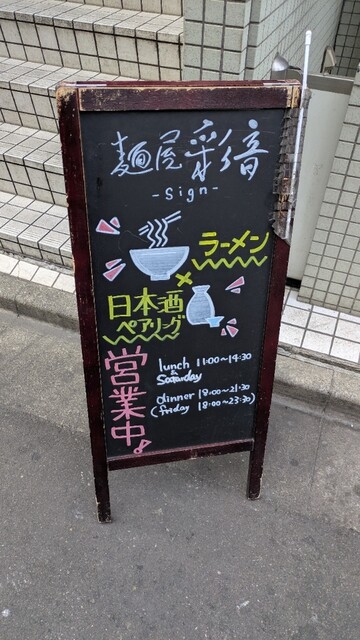 麺屋 彩音
-Sign-
ラーメン
×
日本酒
ペアリング
営業中♪
lunch 11:00~14:30
&
Saturday
dinner 18:00~21:30
(friday 18:00~23:30)